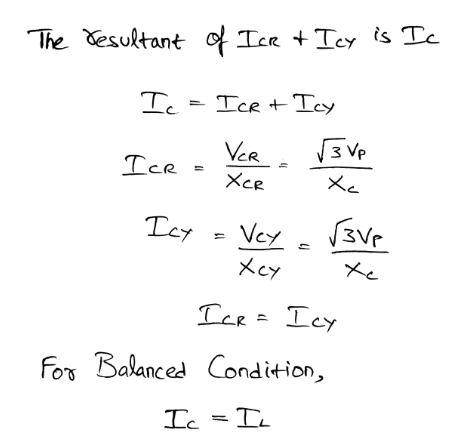 The resultant of ICR + ICY is IC
IC = ICR + ICY
ICR = VCR / XCR = √3 VP / XC
ICY = VCY / XCY = √3VP / XC
ICR = ICY
For Balanced Condition,
IC = IL